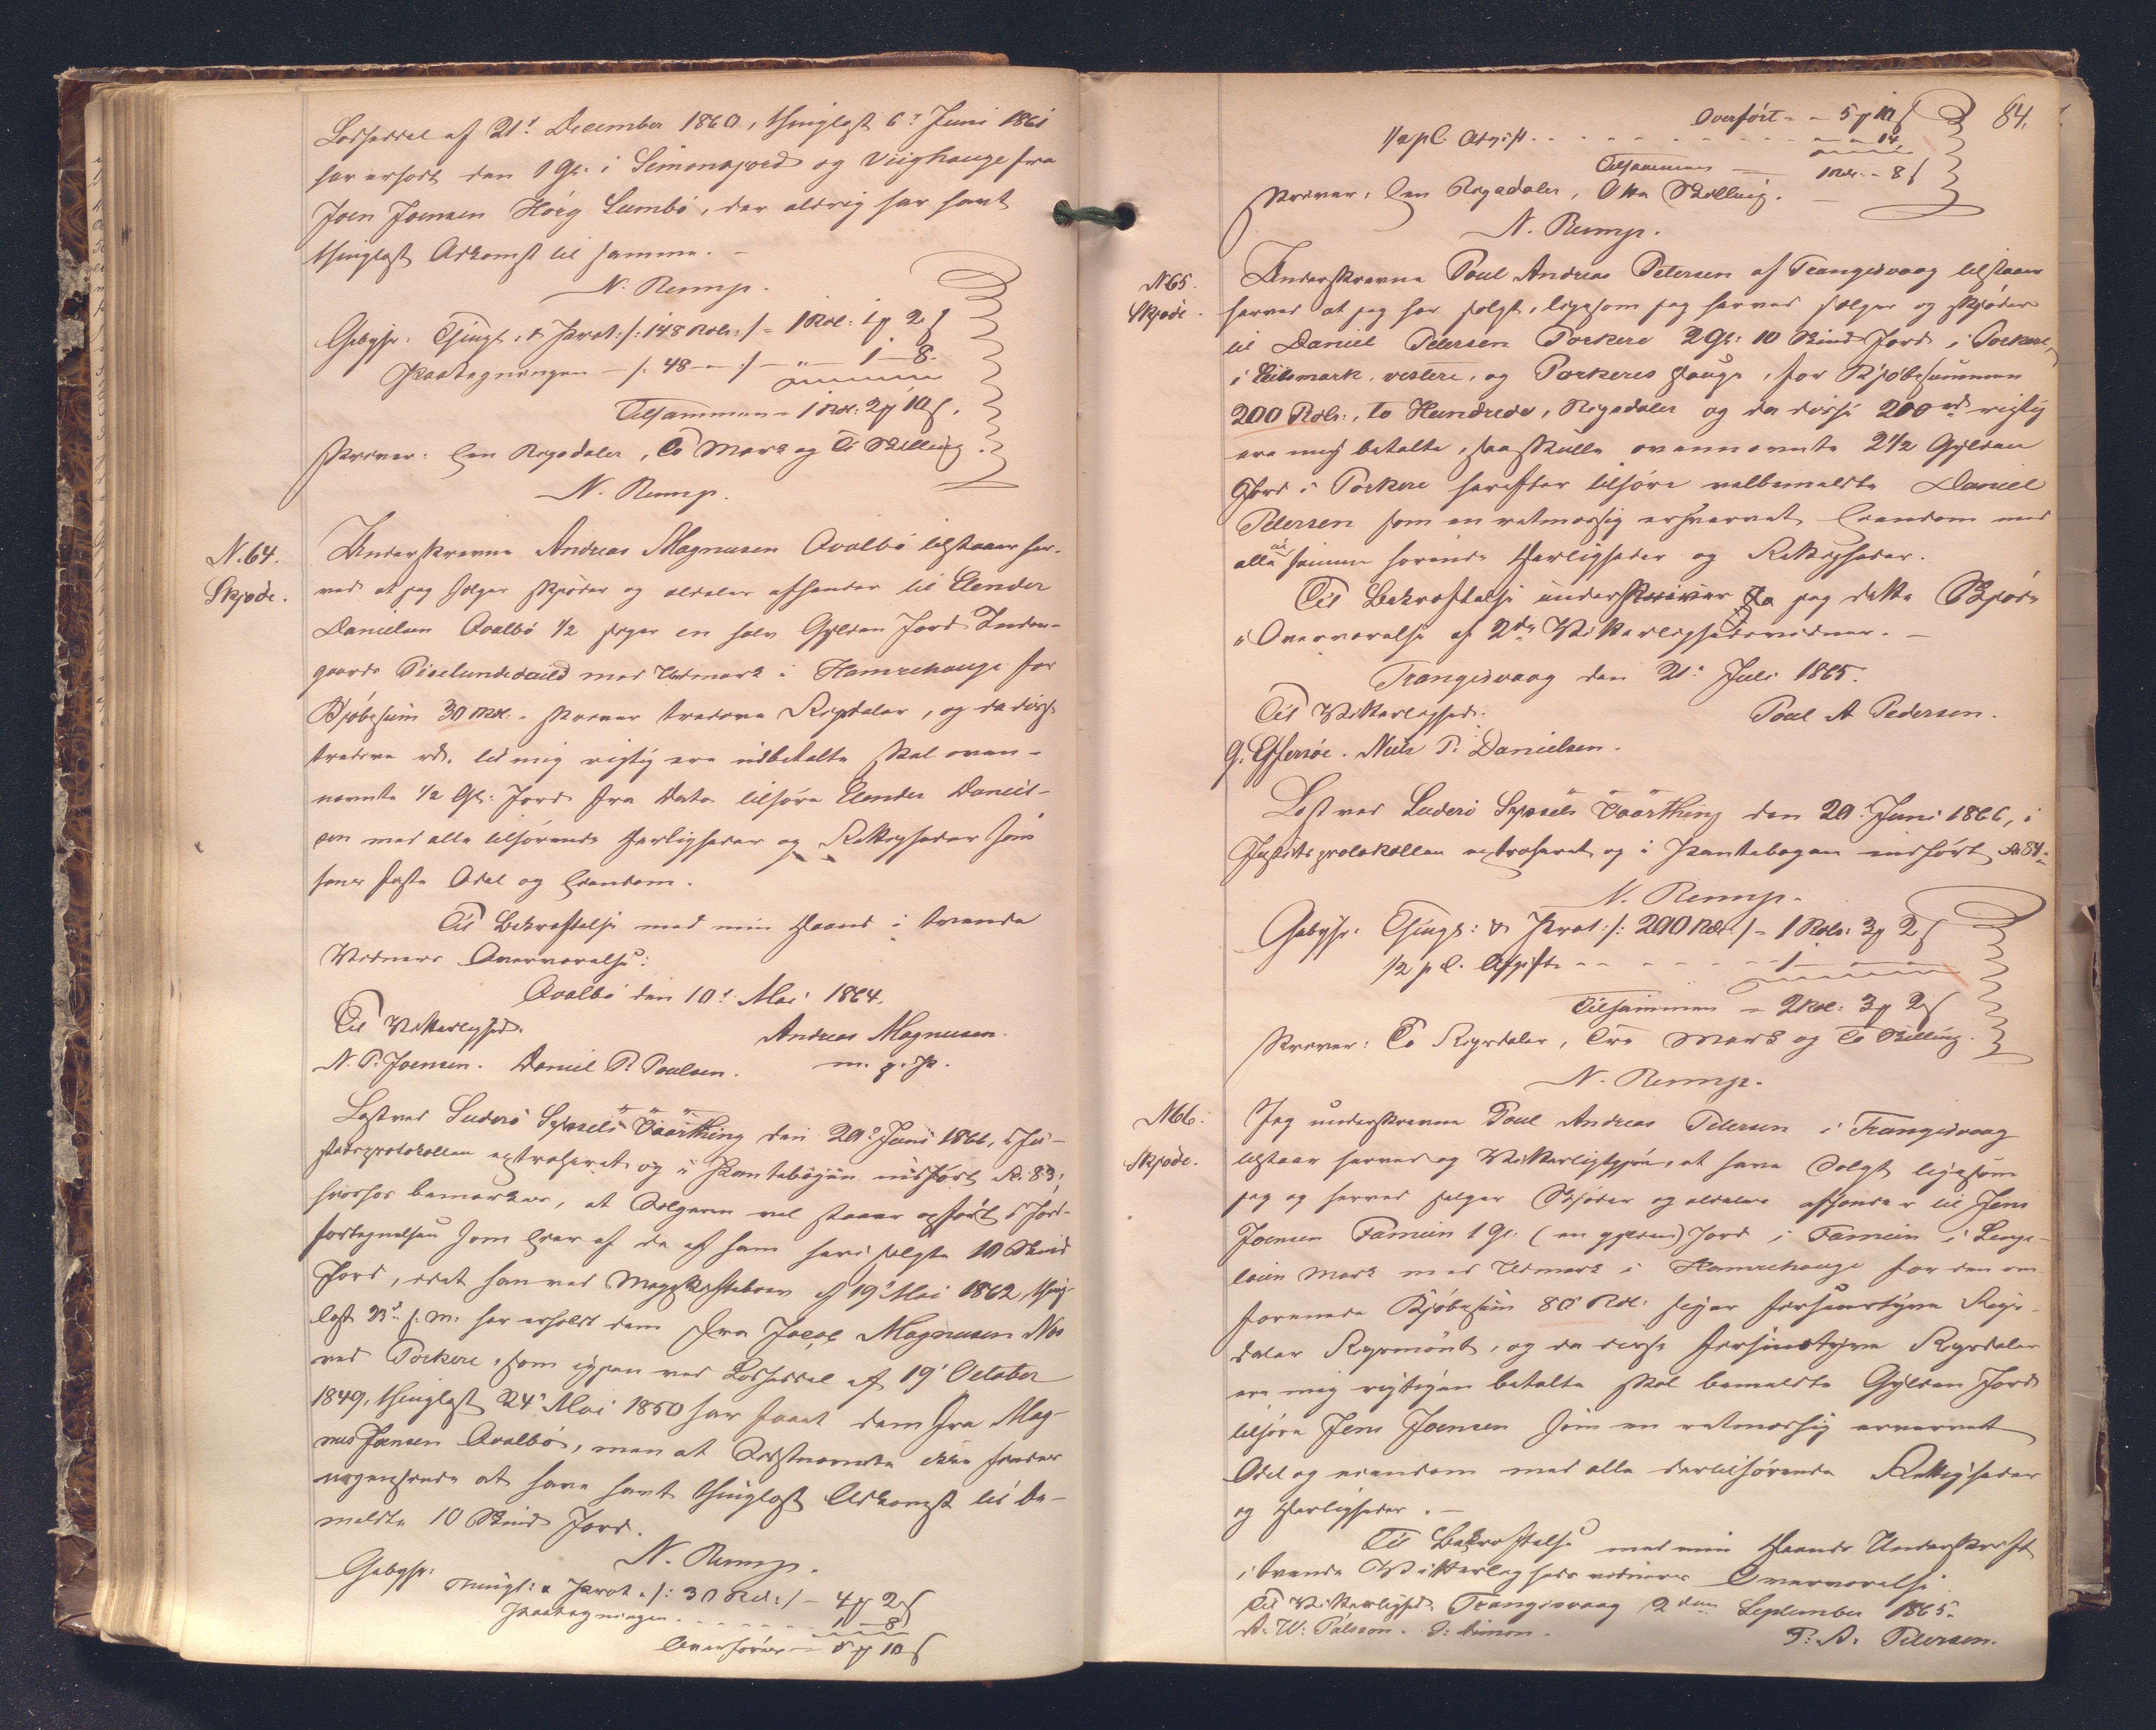 Lodseddel af 21' December 1860, thinglæst 6' Juni 1861
har erholdt den 1 Gl. i Simonsjord og Viighauge fra
Joen Joensen Hörg Sumbö, der aldrig har havt
thinglæst Adkomst til samme. -
N. Rump.
Gebyhr: Thingl: & Prot: /: 148 Rdlr: / - 1 Rdl: 1 ꝳ 2 ß
Paategningen - /: 48 - - :/ - " 1 - 8.
Tilsammen - 1 Rdl: 2 ꝳ 10 ß.
skriver: Een Rigsdaler, To Mark og Ti Skilling.
N. Rump.
N. 64.
Skjøde.
Underskrevne Andreas Magnusen Qvalbö tilstaaer her-
ved at jeg sælger skjøder og aldeles afhænder til Elender
Danielsen Qvalbö 1/2 siger en halv Gylden Jord Inden-
gaards med Udmark i Hamrehauge for
Kjøbesum 30 Rdl: - skriver tredeve Rigsdaler, og da disse
tredeve rd. til mig rigtig ere udbetalte skal oven-
nævnte 1/2 Gl: Jord fra Dato tilhøre Elender Daniel-
sen med alle tilhørende Herligheder og Rettigheder som
hans faste Odel og Eiendom.
Til Bekræftelse med min Haand i tvende
Vidners Overværelse:
Qvalbö den 10' Mai 1864.
Til Vitterlighed.
Andreas Magnusen.
N. P. Joensen. Daniel P. Poulsen.
m. p. P.
Læst ved Suderö Syssels Vaarthing den 20' Juni 1866, i Ju-
stitsprotokollen extraheret og i Pantebogen indført A. 83;
hvorhos bemærkes, at Sælgeren vel staaer opført i Jord-
fortegnelsen som Eier af de af ham her solgte 10 Skind
Jord, idet han ved Mageskiftebrev af 19' Mai 1862, thing-
læst 23' s. M. har erholdt dem fra Jacob Magnusen Næs
ved Porkere, som igjen ved Lodseddel af 19' October
1849, thinglæst 24' Mai 1850 har faaet dem fra Mag-
nus Joensen Qvalbö, men at Sidstnævnte ikke sees
nogensinde at have havt thinglæst Adkomst til be-
meldte 10 Skind Jord.
N. Rump.
Gebyhr:
Thingl: & Prot. /: 30 Rd: / - 4 ꝳ 2 ß
Paategningen - - - - - 1 - 8
Overføres - 5 ꝳ 10 ß
84.
Overført - - 5 ꝳ 10 ß
1/2 pC. Afgift - - - - - - - - - - - 14
Tilsammen - 1 Rdl. - 8 ß
skriver: Een Rigsdaler, Otte Skilling. -
N. Rump.
N 65.
Skjøde.
Underskrevne Poul Andreas Petersen af Trangisvaag tilstaaer
herved at jeg har solgt, ligesom jeg herved sælger og skjøder
til Daniel Petersen Porkere 2 Gl: 10 Skind Jord i Porkere,
i mark vestere, og Porkeres Hauge, for Kjøbesummen
200 Rdlr., to Hundrede, Rigsdaler og da disse 200 rd rigtig
ere mig betalte, saa skulle ovennævnte 2 1/2 Gylden
Jord i Porkere herefter tilhøre velbemeldte Daniel
Petersen som en retmæssig erhvervet Eiendom med
alle til samme hørende Herligheder og Rettigheder.
Til Bekræftelse underskriver jeg dette Skjøde
i Overværelse af 2de Vitterlighedsvidner. -
Trangisvaag den 21' Juli 1865.
Til Vitterlighed:
Poul A Pedersen.
G. Effersöe. Niels P. Danielsen.
Læst ved Suderö Syssels Vaarthing den 20' Juni 1866, i
Justitsprotokollen extraheret og i Pantebogen indført A 84.
N. Rump.
Gebyhr: Thingl: & Prot: /: 200 Rdl: / - 1 Rdlr: 3 ꝳ 2 ß
1/2 pC. Afgift - - - - - - 1 - - -
Tilsammen - 2 Rdl: 3 ꝳ 2 ß
skriver: To Rigsdaler, Tre Mark og To Skilling.
N. Rump.
N 66.
Skjøde.
Jeg underskrevne Poul Andreas Petersen i Trangisvaag
tilstaar herved og Vitterliggjøre, at have Solgt ligesom
jeg og herved sælger Skjøder og aldeles afhænder til Jens
Joensen Famien 1 Gl. (en gylden) Jord i Famien i Lenge-
mark med Udmark i Hamrehauge for den om
forenede Kjöbesum 80 Rdl: siger firsindstyve Rigs-
daler Rigsmönt, og da disse firsindstyve Rigsdaler
ere mig rigtigen betalte skal bemeldte Gylden Jord
tilhøre Jens Joensen som en retmæssig erhvervet
Odel og eiendom med alle dertilhørende Rettigheder
og Herligheder. -
Til Bekræftelse med min Haands Underskrift
i tvende Vitterligheds vidners Overværelse
Til Vitterlighed. Trangisvaag 2den September 1865.
A. W. Pálsson. S: Simon.
P. A. Petersen.